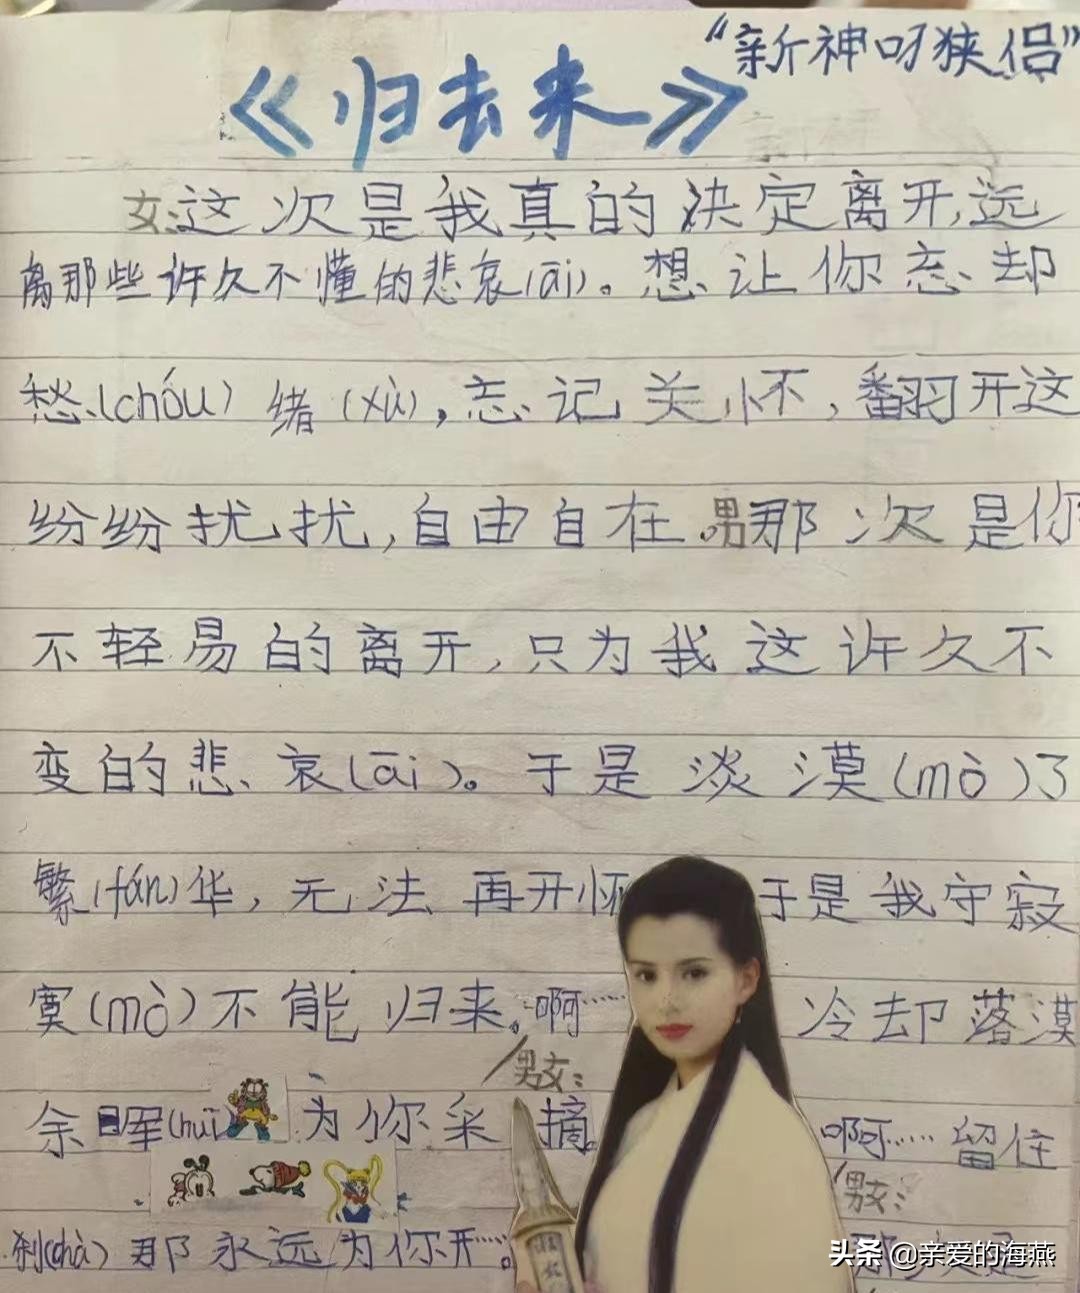 “新神叼狭侣”
《归去来》
女:这次是我真的决定离开,远
离那些许久不懂的悲哀(āi)。想让你忘却
愁(chóu)绪(xù),忘记关怀,翻开这
纷纷扰扰,自由自在 男那次是你
不轻易的离开,只为我这许久不
变的悲哀(āi)。于是淡漠(mò)了
繁(fán)华,无法再开怀 于是我守寂
寞(mò)不能归来。啊…… 冷却落漠
男女:
余晖(huī) 为你采摘。 啊……留住
男女:
刹(chà)那永远为你开……。 那次是
头条 @亲爱的海燕